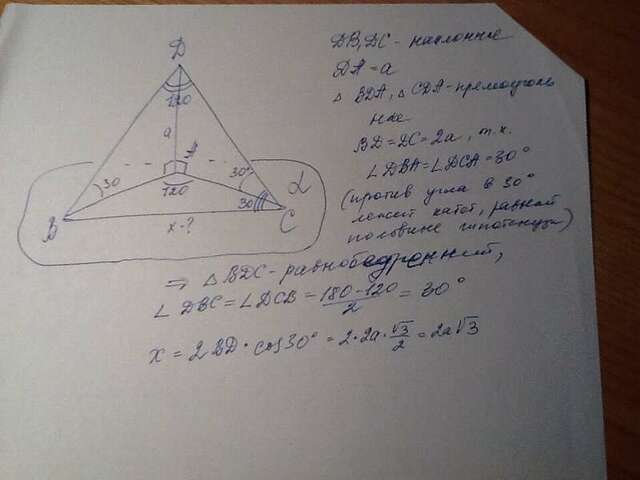 D
120
a
30
30°
120
30
α
B
C
x-?
DB, DC - наклонные
DA = a
△ BDA, △ CDA - прямоуголь
ные
BD = DC = 2a, т.к.
∠ DBA = ∠ DCA = 30°
(против угла в 30°
лежит катет, равный
половине гипотенузы)
⇒ △ BDC - равнобедренный,
∠ DBC = ∠ DCB = (180 - 120)/2 = 30°
x = 2 BD · cos 30° = 2 · 2a · √3/2 = 2a√3